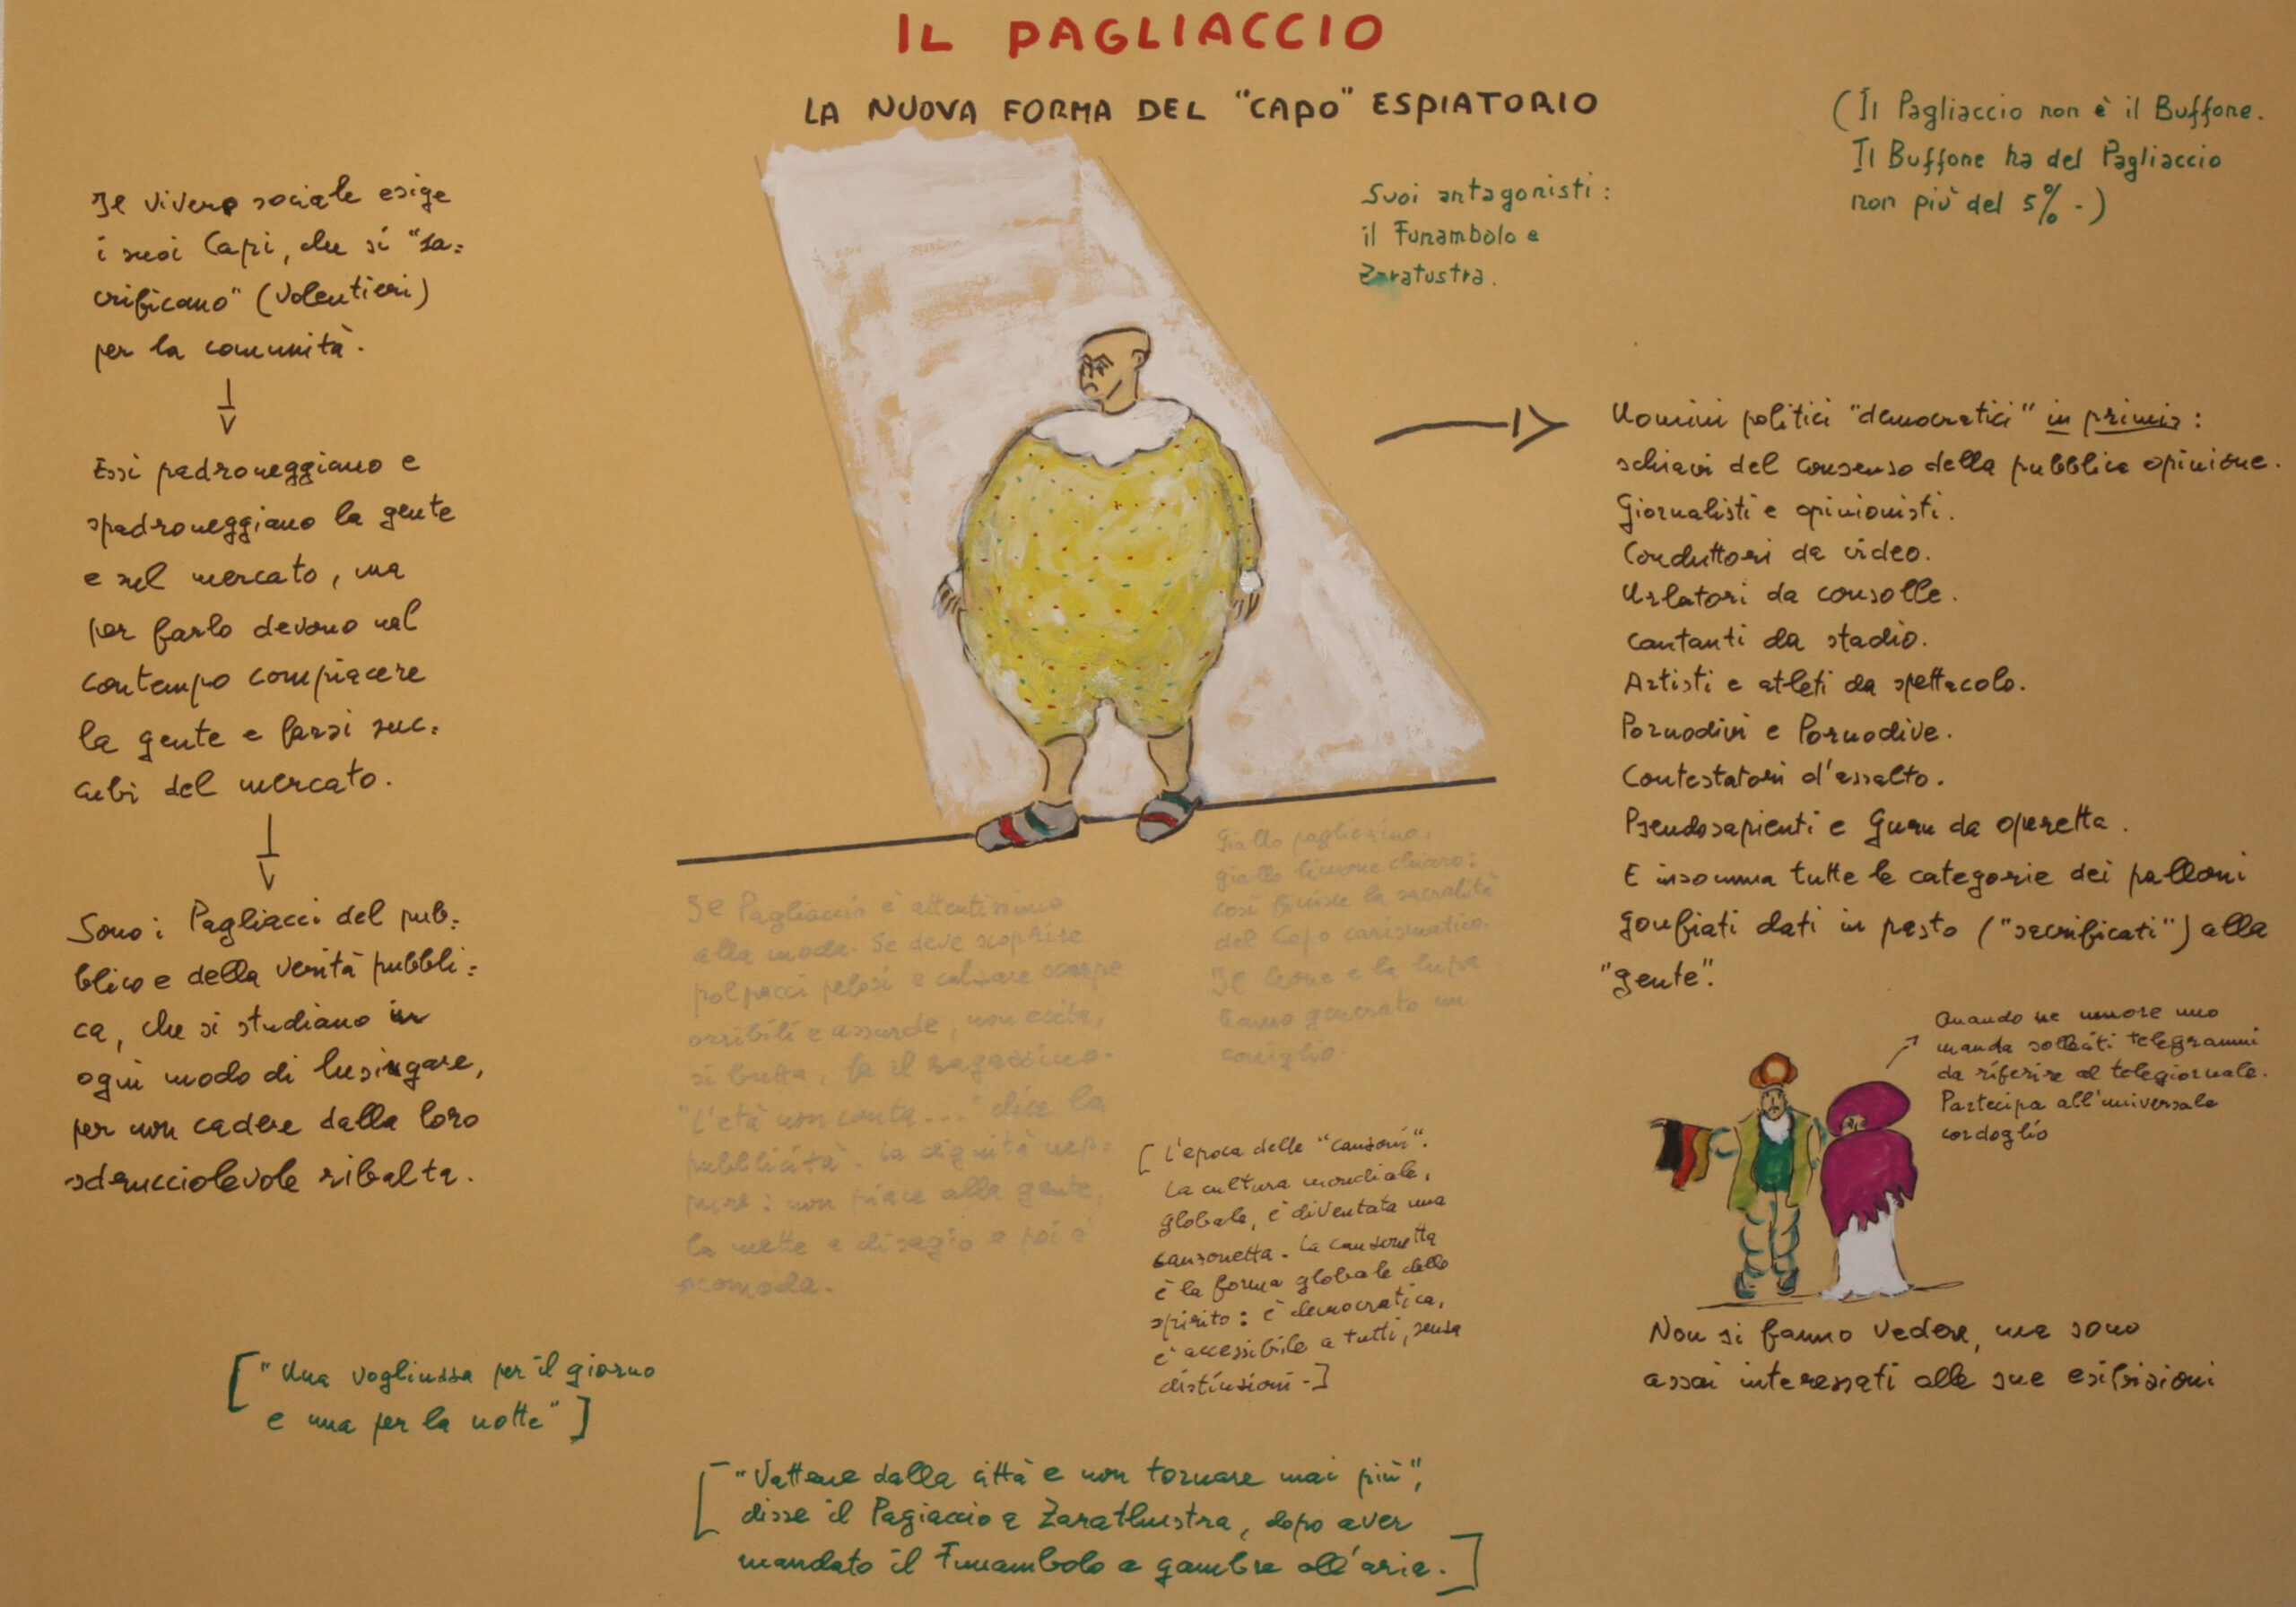 IL PAGLIACCIO
LA NUOVA FORMA DEL "CAPO" ESPIATORIO
(Il Pagliaccio non è il Buffone.
Il Buffone ha del Pagliaccio
non più del 5% -)
Suoi antagonisti:
il Funambolo e
Zaratustra.
Il vivere sociale esige
i suoi Capi, che si "sa=
crificano" (volentieri)
per la comunità.
Essi padroneggiano e
spadroneggiano la gente
e sul mercato, ma
per farlo devono nel
contempo compiacere
la gente e farsi suc=
cubi del mercato.
Sono i Pagliacci del pub=
blico e della verità pubbli=
ca, che si studiano in
ogni modo di lusingare,
per non cadere dalla loro
sdrucciolevole ribalta.
["Una vogliuzza per il giorno
e una per la notte"]
Il Pagliaccio è attentissimo
alla moda. Se deve scoprire
polpacci pelosi e calzare scarpe
orribili e assurde, non esita,
si butta, fa il ragazzino.
"L'età non conta..." dice la
pubblicità. La dignità nep=
pure: non piace alla gente,
la mette a disagio e poi è
scomoda.
Giallo paglierino,
giallo limone chiaro:
così finisce la sacralità
del Capo carismatico.
Il leone e la lupa
hanno generato un
coniglio.
[L'epoca delle "canzoni".
La cultura mondiale,
globale, è diventata una
canzonetta. La canzonetta
è la forma globale dello
spirito: è democratica,
è accessibile a tutti, senza
distinzioni-]
["Vattene dalla città e non tornare mai più",
disse il Pagiaccio a Zarathustra, dopo aver
mandato il Funambolo a gambe all'aria.]
Uomini politici "democratici" in primis:
schiavi del consenso della pubblica opinione.
Giornalisti e opinionisti.
Conduttori da video.
Urlatori da consolle.
Cantanti da stadio.
Artisti e atleti da spettacolo.
Pornodivi e Pornodive.
Contestatori d'assalto.
Pseudosapienti e Guru da operetta.
E insomma tutte le categorie dei palloni
gonfiati dati in pasto ("sacrificati") alla
"gente".
Quando ne muore uno
manda solleciti telegrammi
da riferire al telegiornale.
Partecipa all'universale
cordoglio
Non si fanno vedere, ma sono
assai interessati alle sue esibizioni